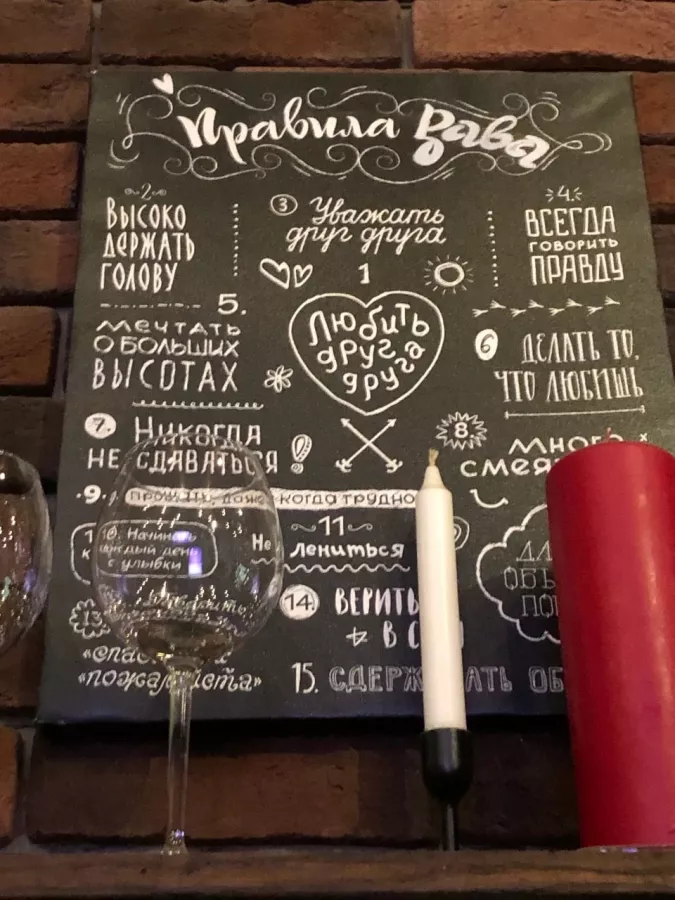 Правила Вава
2
Высоко
держать
голову
3 Уважать
друг друга
4.
Всегда
говорить
правду
1
Любить
друг
друга
5.
Мечтать
о больших
высотах
6 Делать то,
что любишь
7. Никогда
не сдаваться!
8.
Много
9. даже когда трудно
10. Начинать
каждый день
с улыбки
11
Не лениться
13.
«пожалуйста»
14. Верить
в
15.